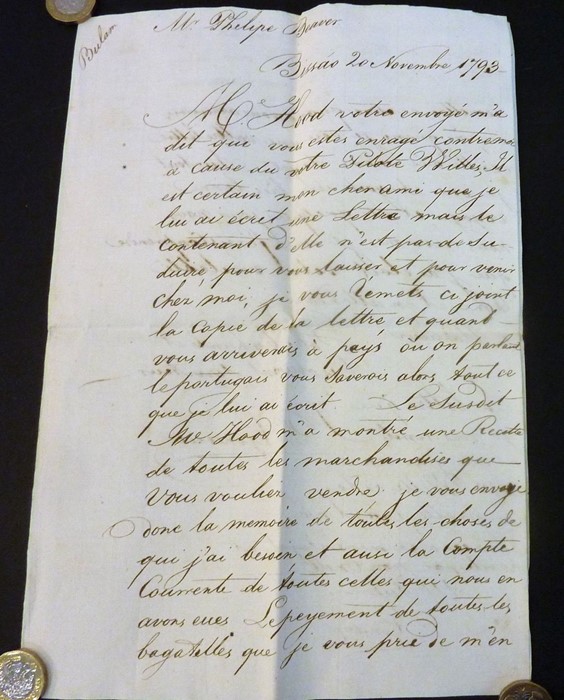 Mr Phelipe Beaver
Bulam
Bissáo 20 Novembre 1793
M. Hood votre envoyé m'a
dit que vous estes enragé contre moi
a cause du votre Pilote Willes. Il
est certain mon cher ami que je
lui ai écrit une Lettre mais le
contenant d'elle n'est pas de Su-
duire pour vous laisser et pour venir
chez moi, je vous remets ci joint
la Copie de la lettre et quand
vous arriverais à pays où on parle
le portugais vous saverois alors tout ce
que je lui ai écrit. Le Susdit
Mr Hood m'a montré une Recette
de toutes les marchandises que
vous voulier vendre je vous envoye
donc la memoire de toutes les choses de
qui j'ai besoin et ausi la Compte
Courrente de toutes celles qui nous en
avons eues Le peyement de toutes les
bagatelles que je vous prie de m'en